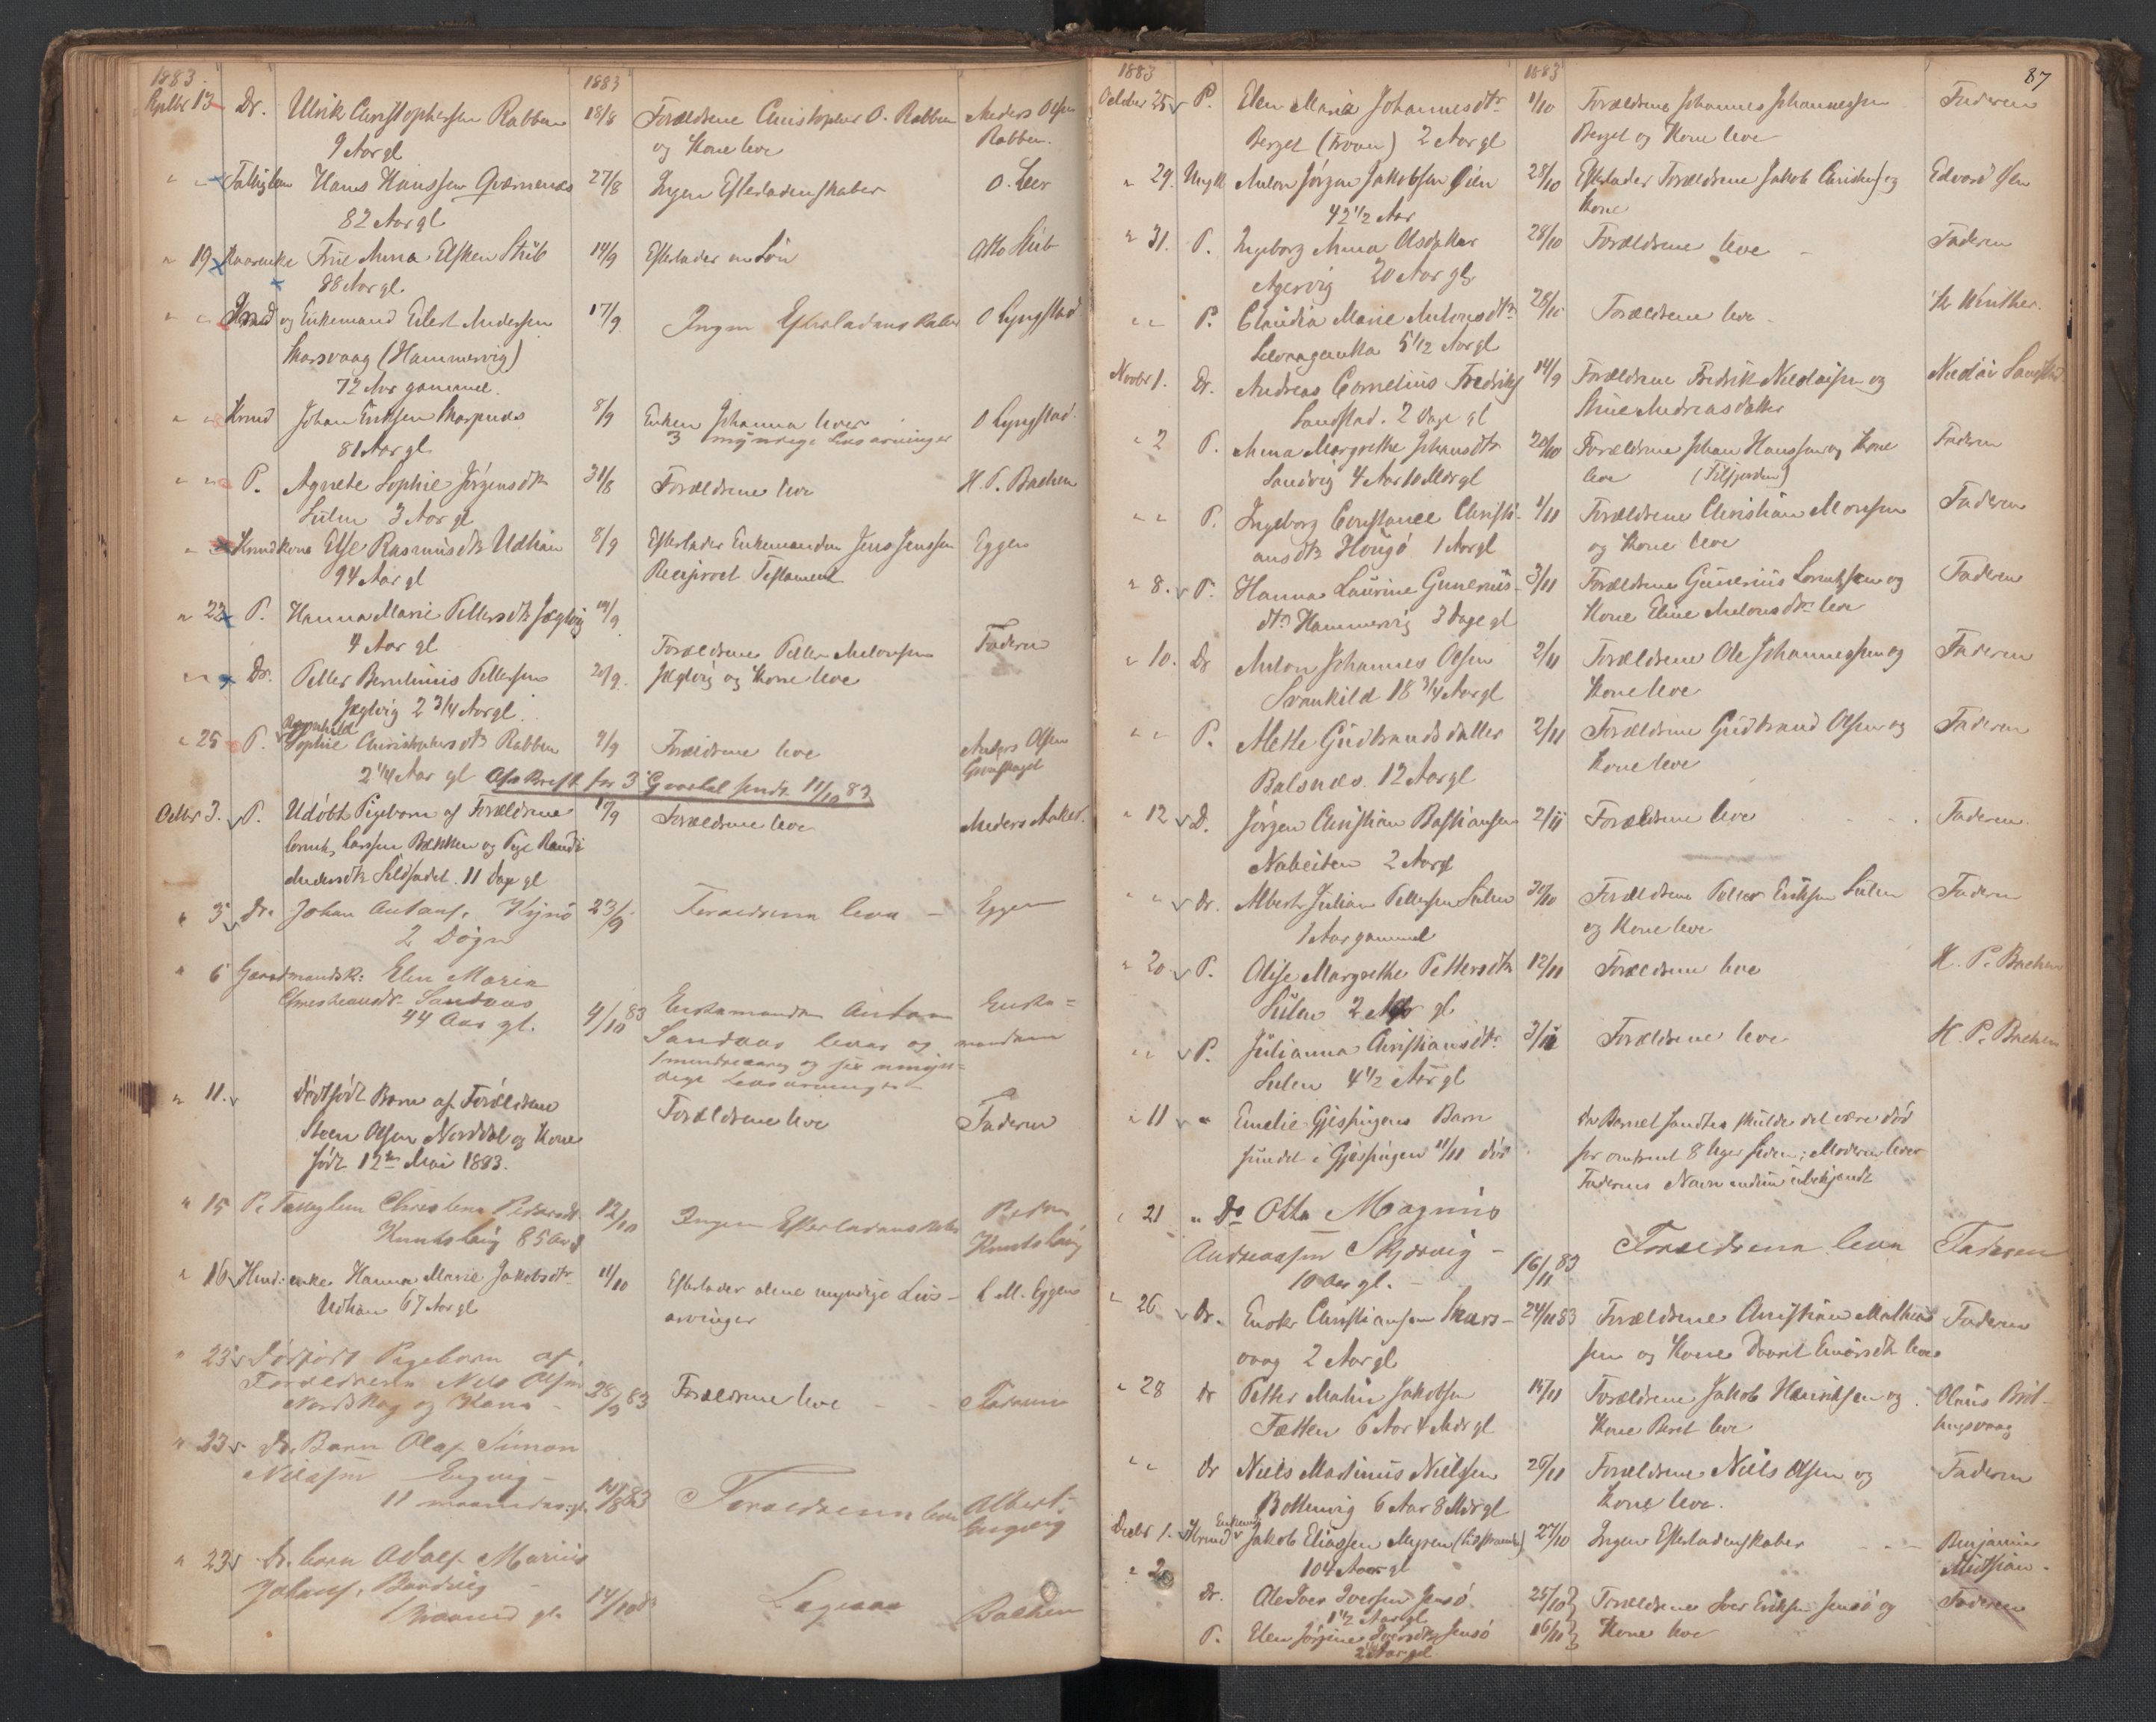 1883. 1883
Septbr 13 Dr. Ulrik Christophersen Rabben 18/8 Forældrene Christopher O. Rabben Anders Olsen
9 Aar gl og Kone leve Rabben.
" " Fattiglem Hans Hanssen Qværnenes 27/8 Ingen Efterladenskaber O. Leer
82 Aar gl
" 19 Enke Frue Anna Elsken Stub 14/9 Efterlader en Søn Otto Stub
88 Aar gl.
" " Hmd og Enkemand Eilert Andersen 17/9. Ingen Efterladenskaber O Lyngstad
Skarsvaag (Hammervig)
72 Aar gammel.
" " Hmd Johan Eriksen Skarpnes 8/9 Enken Johanna lever O Lyngstad.
81 Aar gl. 3 myndige Livsarvinger
" " P. Agnete Sophie Jørgensdtr 31/8 Forældrene leve H. P. Bachen
Sulen 3 Aar gl
" Hmdkone Else Rasmusdtr Udhian 8/9 Efterlader Enkemanden Jens Jenssen Eggen
94 Aar gl Reciprocet Testament
" 22 P. Hanna Marie Pettersdtr Jægtvig 19/9.
4 Aar gl Forældrene Petter Antonsen Faderen
" " Dr. Petter Berntinius Pettersen 20/9. Jægtvig og Kone leve
Jægtvig 2 3/4 Aar gl.
Ragnhild
" 25 P. Sophie Christophersdtr Rabben 9/9 Forældrene leve Anders Olsen
2 1/4 Aar gl Afskrift for 3 Qvartal sendt 11/10 83
Octbr 3. P. Udøbt Pigebarn af Forældrene 17/9 Forældrene leve Anders Anker.
Cornel. Larssen Bækken og Pige Randi
Andersdtr Sildstadet. 11 Dage gl
" 3 Dr. Johan Antons. Kjerø 23/9 Forældrene leve – Eggen
2 Døgn
" 6 Gaardmandsk: Elen Maria
Christiansdtr Sandaas
44 Aar gl. 4/10 83 Enkemanden Anton Enke=
Sandaas lever og manden
1 mindreaarig og sex umyn=
dige Livsarvinger –
" 11. Dødfødt Barn af Forældrene Forældrene leve Faderen
Steen Olsen Norddal og Kone
født 12te Mai 1883.
" 15 P. Fattiglem Christina Pedersdt. 12/10 Ingen Efterladenskaber Peter
Knutshaug 85 Aar Knutshaug
" 16 Hmd: enke Hanna Marie Jakobsdtr 11/10 Efterlader alene myndige Livs– L M. Eggen
Udhian 67 Aar gl arvinger
" 23 Dødfødt Pigebarn af
Forældrene Nils Olsen
Nordskag og Kone – 28/9 83 Forældrene leve – – Faderen
" 23 Dr. Barn Olaf Simon
Nilssen Engvig –
11 maaneder gl. 10/8 83 Forældrene leve Albert
Engvig
" 23 Dr. barn Adolf Marius
Johans. Bondvig –
1 Maaned gl. 14/10 83 Ligesaa Bachen
1883 1883 87
October 25 P. Elen Maria Johannesdtr 1/10 Forældrene Johannes Johannessen Faderen
Berget (Froan) 2 Aar gl Berget og Kone leve
" 29. Ungk Anton Jørgen Jakobsen Øien 28/10 Efterlader Forældrene Jakob Christens. og Edvard Øien
42 1/2 Aar Kone
" 31. P. Ingeborg Anna Olsdatter 28/10 Forældrene leve – Faderen
Agervig 20 Aar gl.
" " P. Claudia Marie Antonsdtr 28/10 Forældrene leve – Winther.
5 1/2 Aar gl
Novbr 1. Dr. Andreas Cornelius Fredriks. 14/9 Forældrene Fredrik Nicolaisen og Nicolai Sandstad
Sandstad. 2 Dage gl Stine Andreasdatter
" 2 P. Anna Margrethe Johansdtr 20/10 Forældrene Johan Hanssen og Kone Faderen
Sandvig 4 Aar 10 Mdr gl leve (Filfjorden)
" " P. Ingeborg Constance Christi– 1/11 Forældrene Christian Monsen Faderen
ansdtr Hougø 1 Aar gl og Kone leve
" 8. P. Hanna Laurine Gunerius– 3/11 Forældrene Gunerius Lorntssen og Faderen
dtr Hammervig 3 Dage gl Kone Eline Antonsdtr leve
" 10. Dr Anton Johannes Olsen 2/11 Forældrene Ole Johannessen og Faderen
Svankild 18 3/4 Aar gl Kone leve
" " P. Mette Gudbrandsdatter 2/11 Forældrene Gudbrand Olsen og Faderen
Balsnes. 12 Aar gl Kone leve
" 12 D. Jørgen Christian Bastiansen 2/11 Forældrene leve Faderen.
Nabeiten 2 Aar gl
" " Dr. Albert Julian Pettersen Sulen 30/10 Forældrene Petter Eriksen Sulen Faderen
1 Aar gammel og Kone leve
" 20 P. Olise Margrethe Pettersdtr 12/11 Forældrene leve H. P. Bachen
Sulen 2 Aar gl.
" " P. Julianna Christiansdtr 3/11 Forældrene leve H. P. Bachen
Sulen 4 1/2 Aar gl
" 11 " Emelie Gjessingens Barn Da Barnet fandtes skulde det være død
fundet i Gjæssingen 11/11 død for omtrent 8 Uger siden; Moderen lever
Faderens Navn endnu ubekjendt
" 21 " Do Otto Magnus
Andreassen Skjærvig – Forældrene leve Faderen
10 Aar gl. – 16/11 83
" 26 Dr. Enok Christiansen Skars– 24/11 83 Forældrene Christian Mathias Faderen
vaag 2 Aar gl sen og Kone Dorrit Einarsdtr leve
" 28 dr Petter Martin Jakobsen 15/11 Forældrene Jakob Henriksen og Olaus Bul–
Fætten 6 Aar 4 Mdr gl Kone Beret leve lingsvaag
" " dr Niels Martinus Nielssen 26/11 Forældrene Niels Olsen og Faderen
Bottenvig 6 Aar 8 Mdr gl Kone leve.
Decbr 1. Hmd Enkem Jakob Eliassen Myren 27/10 Ingen Efterladenskaber – – Benjamin
104 Aar gl
" 2 Dr. Ole Iver Iversen Jensø 25/10 Forældrene Iver Eriksen Jensø og Faderen
1 1/2 Aar gl
P. Elen Jørgine Iversdtr Jensø 16/11 Kone leve
2 Aar gl